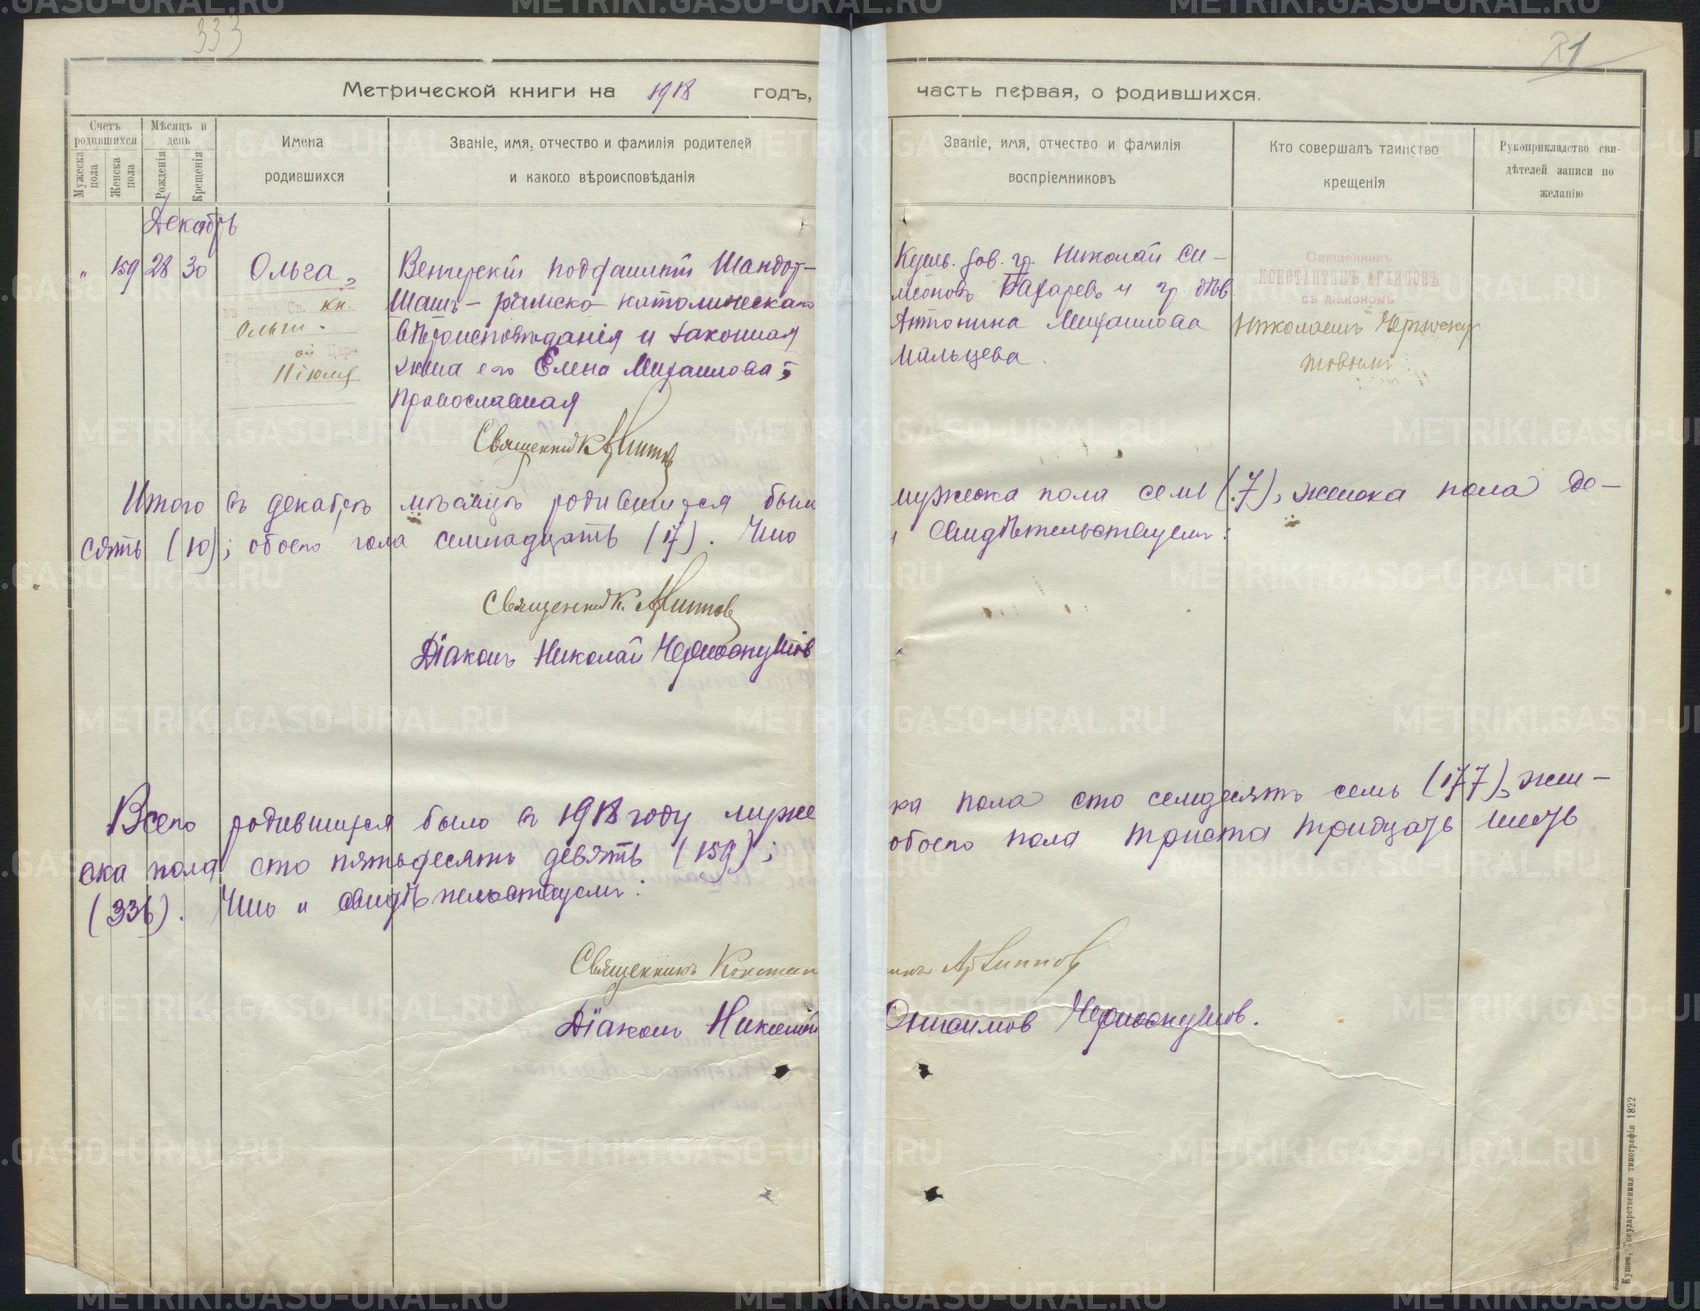 333
21
Метрической книги на 1918 годъ, часть первая, о родившихся.
Счетъ родившихся
Мужеска пола
Женска пола
Мѣсяцъ и день
Рожденія
Крещенія
Имена родившихся
Званіе, имя, отчество и фамилія родителей и какого вѣроисповѣданія
Званіе, имя, отчество и фамилія воспріемниковъ
Кто совершалъ таинство крещенія
Рукоприкладство свидѣтелей записи по желанію
Декабрь
" 159 28 30 Ольга
Св. кн.
Ольги.
11 іюля
Венгерскій подданный Шандор-
Шашъ - римско католическаго
вѣроисповѣданія и законная
жена его Елена Михаилова,
православная
Священник Архиппов
Николай Си-
меоновъ и гр. дѣв.
Антонина Михаилова
Мальцева.
Священникъ
КОНСТАНТИНЪ АРХИПОВЪ
съ діакономъ
Николаемъ
Итого въ декабрѣ мѣсяцѣ родившихся было мужска пола семь (7), женска пола де-
сять (10); обоего пола семнадцать (17). Что и свидѣтельствуемъ:
Священник. Архиппов
Діаконъ Николай
Всего родившихся было въ 1918 году муже ска пола сто семдесятъ семь (177), жен-
ска пола сто пятьдесятъ девять (159); обоего пола триста тридцать шесть
(336). Что и свидѣтельствуемъ:
Священникъ Константинъ Архиппов
Діаконъ Николай Онисимов
Кушва, Государственная типографія 1822
METRIKI.GASO-URAL.RU